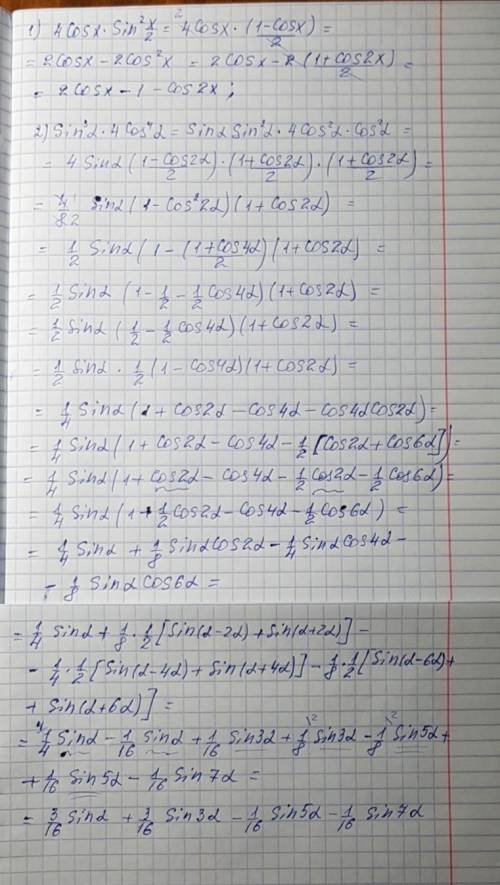 1) 4cosx · sin²x/2 = ²4cosx · (1-cosx)/2 =
= 2cosx - 2cos²x = 2cosx - 2 (1+cos2x)/2 =
= 2cosx - 1 - cos2x ;
2) sin³α · 4cos⁴α = sinα sin²α · 4cos²α · cos²α =
= 4 sinα (1-cos2α)/2 · (1+cos2α)/2 · (1+cos2α)/2 =
= 4/82 sinα (1-cos²2α)(1+cos2α) =
= 1/2 sinα (1 - (1+cos4α)/2)(1+cos2α) =
= 1/2 sinα (1 - 1/2 - 1/2 cos4α)(1+cos2α) =
= 1/2 sinα (1/2 - 1/2 cos4α)(1+cos2α) =
= 1/2 sinα · 1/2 (1-cos4α)(1+cos2α) =
= 1/4 sinα (1 + cos2α - cos4α - cos4αcos2α) =
= 1/4 sinα (1 + cos2α - cos4α - 1/2 [cos2α + cos6α]) =
= 1/4 sinα (1 + cos2α - cos4α - 1/2 cos2α - 1/2 cos6α) =
= 1/4 sinα (1 + 1/2 cos2α - cos4α - 1/2 cos6α) =
= 1/4 sinα + 1/8 sinαcos2α - 1/4 sinαcos4α -
- 1/8 sinαcos6α =
= 1/4 sinα + 1/8 · 1/2 [sin(α-2α) + sin(α+2α)] -
- 1/4 · 1/2 [sin(α-4α) + sin(α+4α)] - 1/8 · 1/2 [sin(α-6α) +
+ sin(α+6α)] =
= ⁴1/4 sinα - 1/16 sinα + 1/16 sin3α + 1/8 ² sin3α - 1/8 ² sin5α +
+ 1/16 sin5α - 1/16 sin7α =
= 3/16 sinα + 3/16 sin3α - 1/16 sin5α - 1/16 sin7α